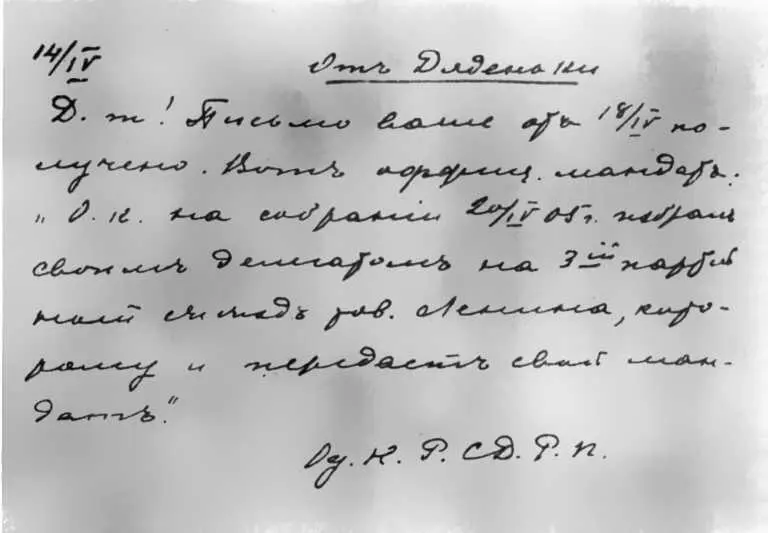 14/IV
Отъ Дяденьки
Д. т! Письмо ваше отъ 18/IV по-
лучено. Вотъ оффиц. мандатъ:
„О. К. на собраніи 20/IV 05 г. избралъ
своимъ делегатомъ на 3 iii партій
ный съѣздъ тов. Ленина, кото-
рому и передастъ свой ман-
датъ."
Од. К. Р. СД. Р. П.